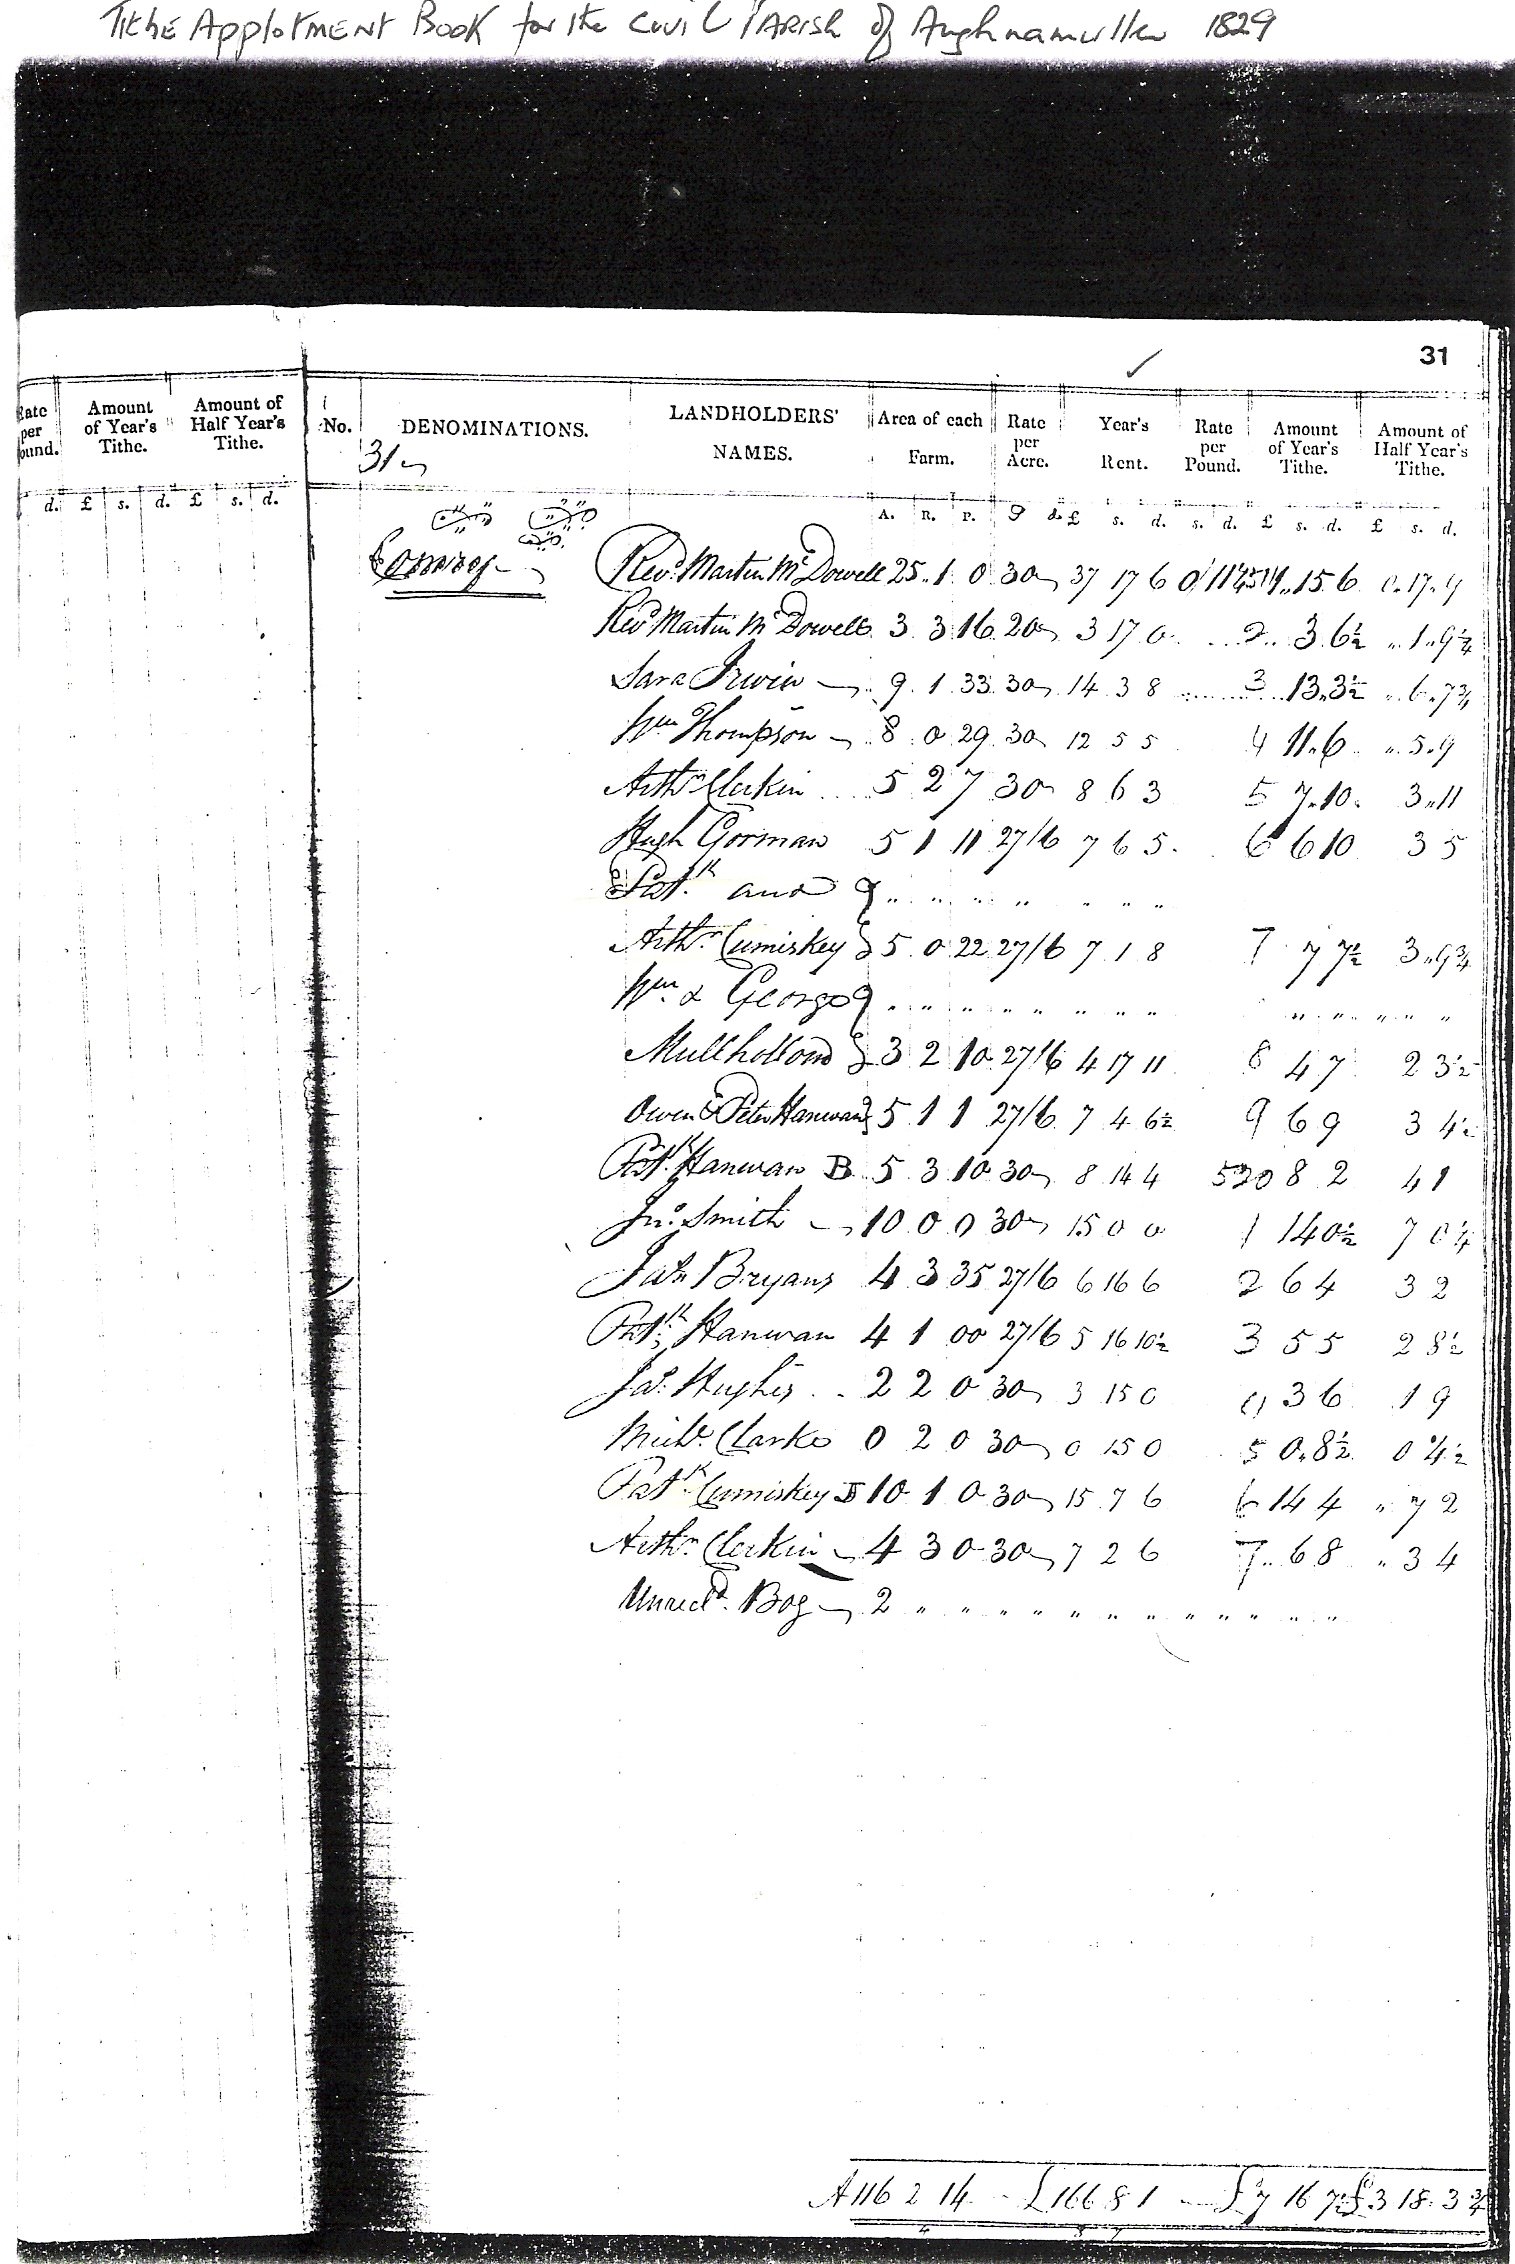 Tithe Applotment Book for the Civil Parish of Aughnamullen 1829
31
Rate per Pound. Amount of Year's Tithe. Amount of Half Year's Tithe. No. DENOMINATIONS. LANDHOLDERS' NAMES. Area of each Farm. Rate per Acre. Year's Rent. Rate per Pound. Amount of Year's Tithe. Amount of Half Year's Tithe.
31
d. £ s. d. £ s. d. A. R. P. d. £ s. d. s. d. £ s. d. £ s. d.
Revd. Martin McDowell 25 1 0 30 37 17 6 15 6 0 17 9
Revd. Martin McDowell 3 3 16 20 3 17 0 2 3 6½ " 1 " 9¼
Sara Irwin 9 1 33 30 14 3 8 3 13 3½ " 6 " 7¾
Wm Thompson 8 0 29 30 12 5 5 4 11 6 " 5 9
Arthr Clerkin 5 2 7 30 8 6 3 5 7 10 3 11
Hugh Gorman 5 1 11 27/6 7 6 5 6 6 10 3 5
Patk and " " " " " " "
Arthr Cumiskey 5 0 22 27/6 7 1 8 7 7 7½ 3 " 9¾
Wm & George " " " " " " " " " " " " "
Mullholland 3 2 10 27/6 4 17 11 8 4 7 2 3½
Owen & Peter Hanwan 5 1 1 27/6 7 4 6½ 9 6 9 3 4½
Patk Hanwan B 5 3 10 30 8 14 4 520 8 2 4 1
Jno. Smith 10 0 0 30 15 0 0 1 14 0½ 7 0¼
Jas Bryans 4 3 35 27/6 6 16 6 2 6 4 3 2
Patk Hanwan 4 1 00 27/6 5 16 10½ 3 5 5 2 8½
Jas. Hughes 2 2 0 30 3 15 0 3 6 1 9
Michl. Clarke 0 2 0 30 0 15 0 5 0 8½ 0 4½
Patk Cumiskey 10 1 0 30 15 7 6 6 14 4 " 7 2
Arthr Clerkin 4 3 0 30 7 2 6 7 6 8 " 3 4
Unrecd. Bog 2 " " " " " " " " " " " "
A116 2 14 £166 8 1 £7 16 7 £3 18 3¾